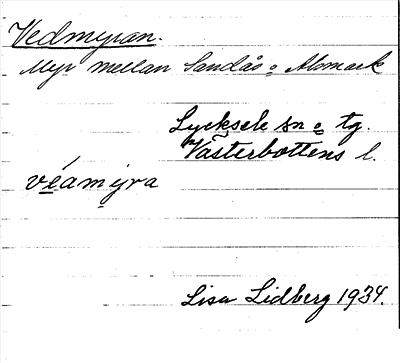 Vedmyran.
Myr mellan Sandås o Almark
Lycksele sn o tg.
Västerbottens l.
véamyra
Lisa Lidberg 1934.